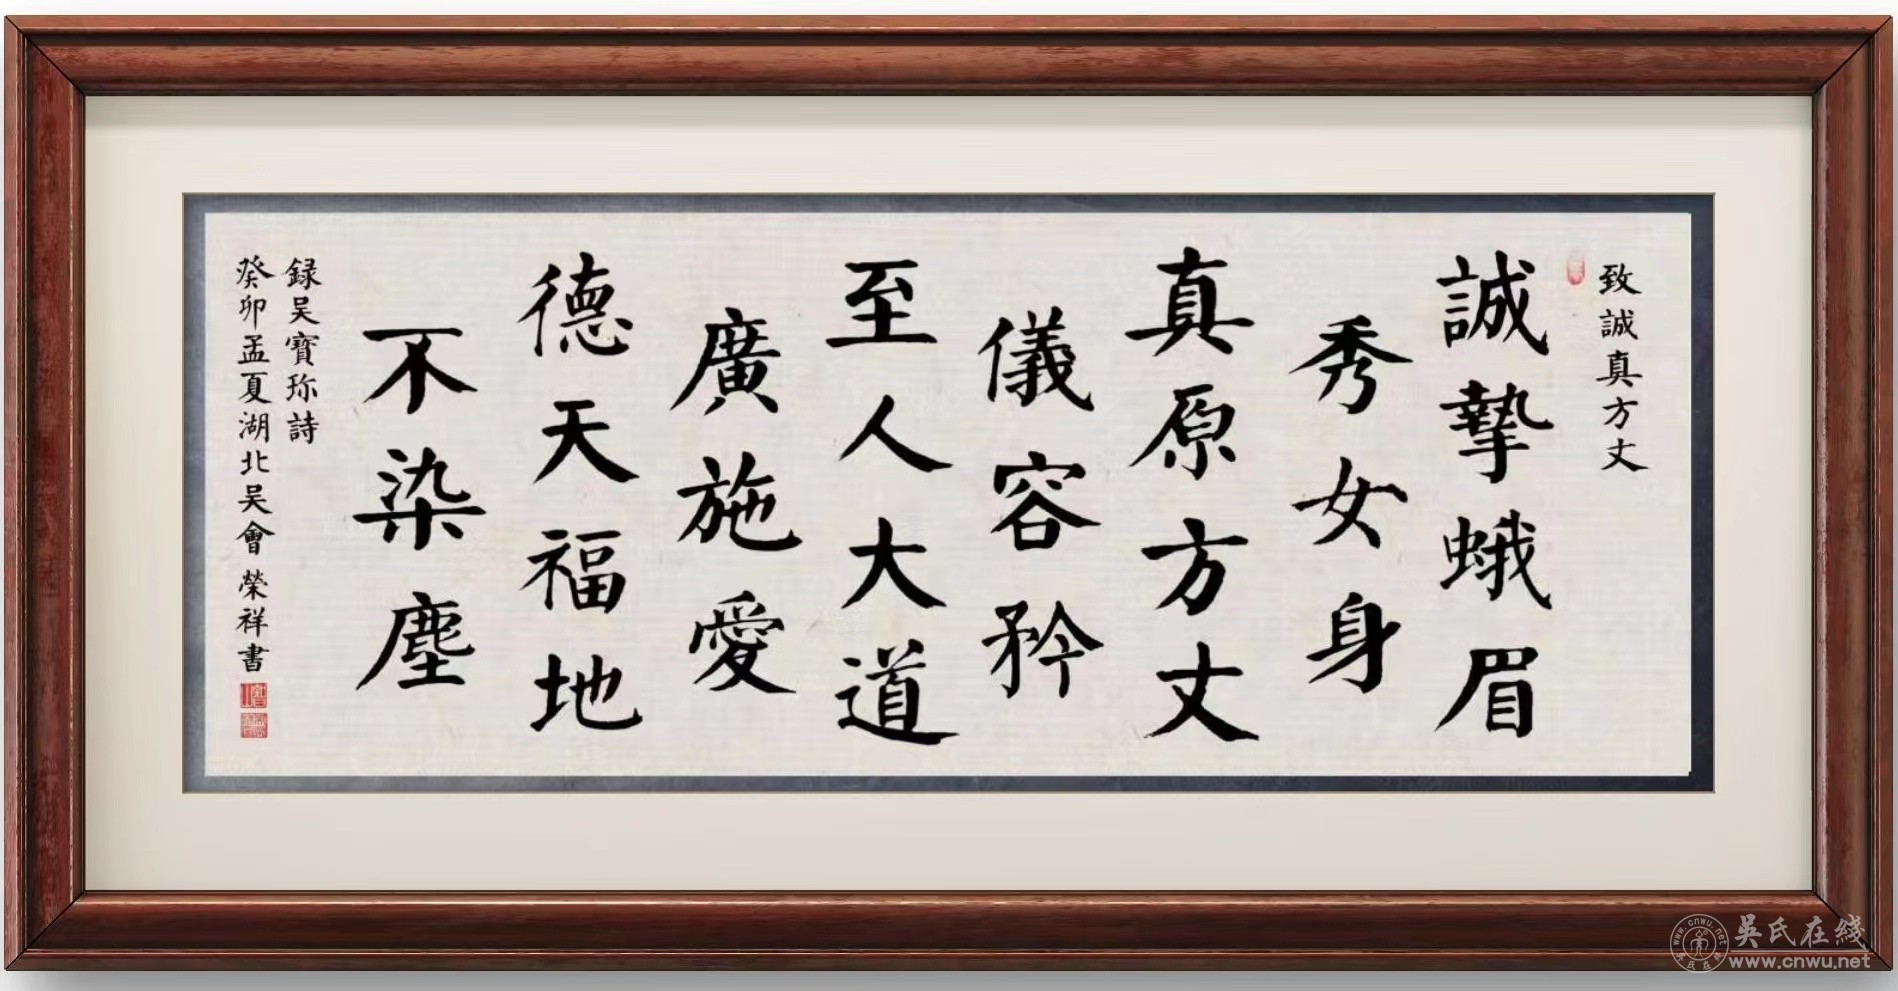 致誠真方丈
誠摯蛾眉
秀女身
真原方丈
儀容矜
至人大道
廣施愛
德天福地
不染塵
録吴寶珎詩
癸卯孟夏湖北吴會 榮祥書
吳氏在綫
www.cnwu.net